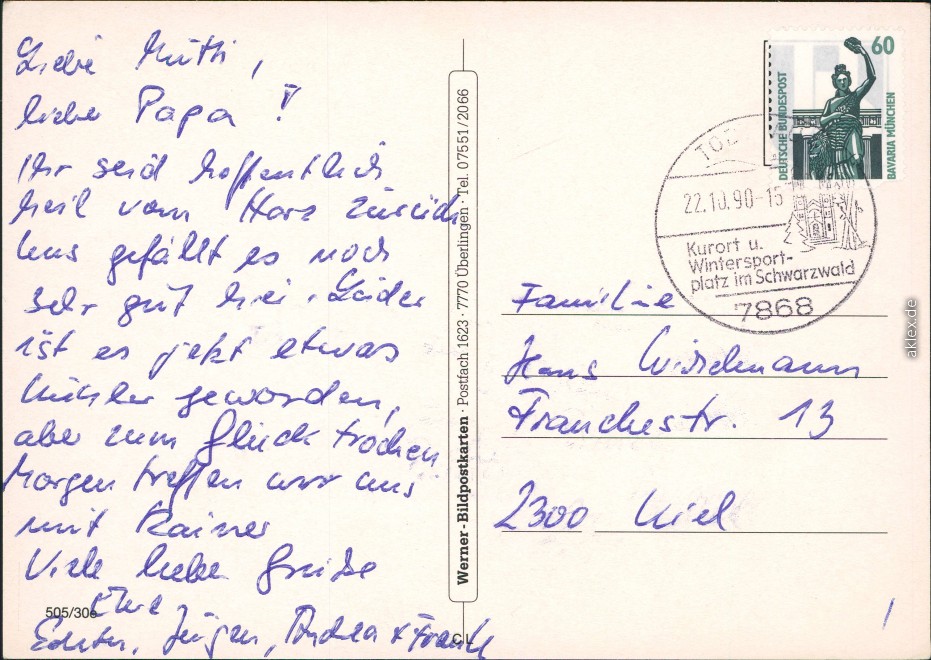 Liebe Mutti,
lieber Papa!
Ihr seid hoffentlich
heil vom Harz zurück
Uns gefällt es noch
sehr gut hier. Leider
ist es jetzt etwas
kühler geworden,
aber zum Glück trocken
Morgen treffen wir uns
mit Rainer
Viele liebe Grüße
Eure
Jürgen, Andrea + Frank
505/30e
Werner-Bildpostkarten · Postfach 1623 · 7770 Überlingen · Tel. 07551/2066
CL
60
DEUTSCHE BUNDESPOST
BAVARIA MÜNCHEN
22.10.90-15
Kurort u.
Wintersport-
platz im Schwarzwald
7868
Familie
Hans
Franckestr. 13
2300 Kiel
aklex.de